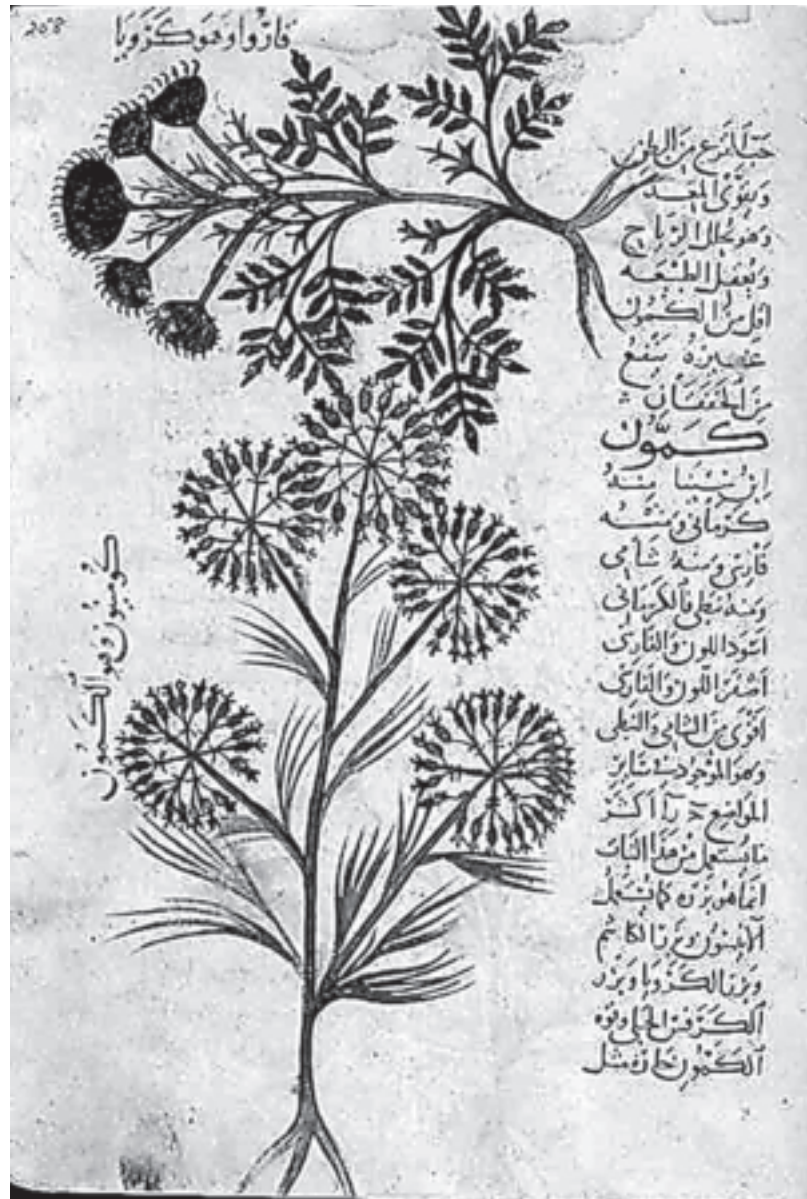 208
قاروا وهو كرويا
حب القرع من البطن
ويقوى المعدة
وهو يحلل الرياح
ويعقل الطبيعه
اقل من الكمون
عصيره ينفع
من الخفقان
كمون
ابن سينا منه
كرمانى ومنه
فارسى ومنه شامى
ومنه نبطى فالكرمانى
اسود اللون والفارسى
اصفر اللون والفارسى
اقوى من الشامى والنبطى
وهو الموجود فى ساير
المواضع ج اكثر
ما يستعمل من هذا النبات
انما هو بزره كما يستعمل
الانيسون وبزر الكاشم
وبزر الكرويا وبزر
الكرفس الجبلى وقوة
الكمون حارة مثل
كومينون وهو الكمون